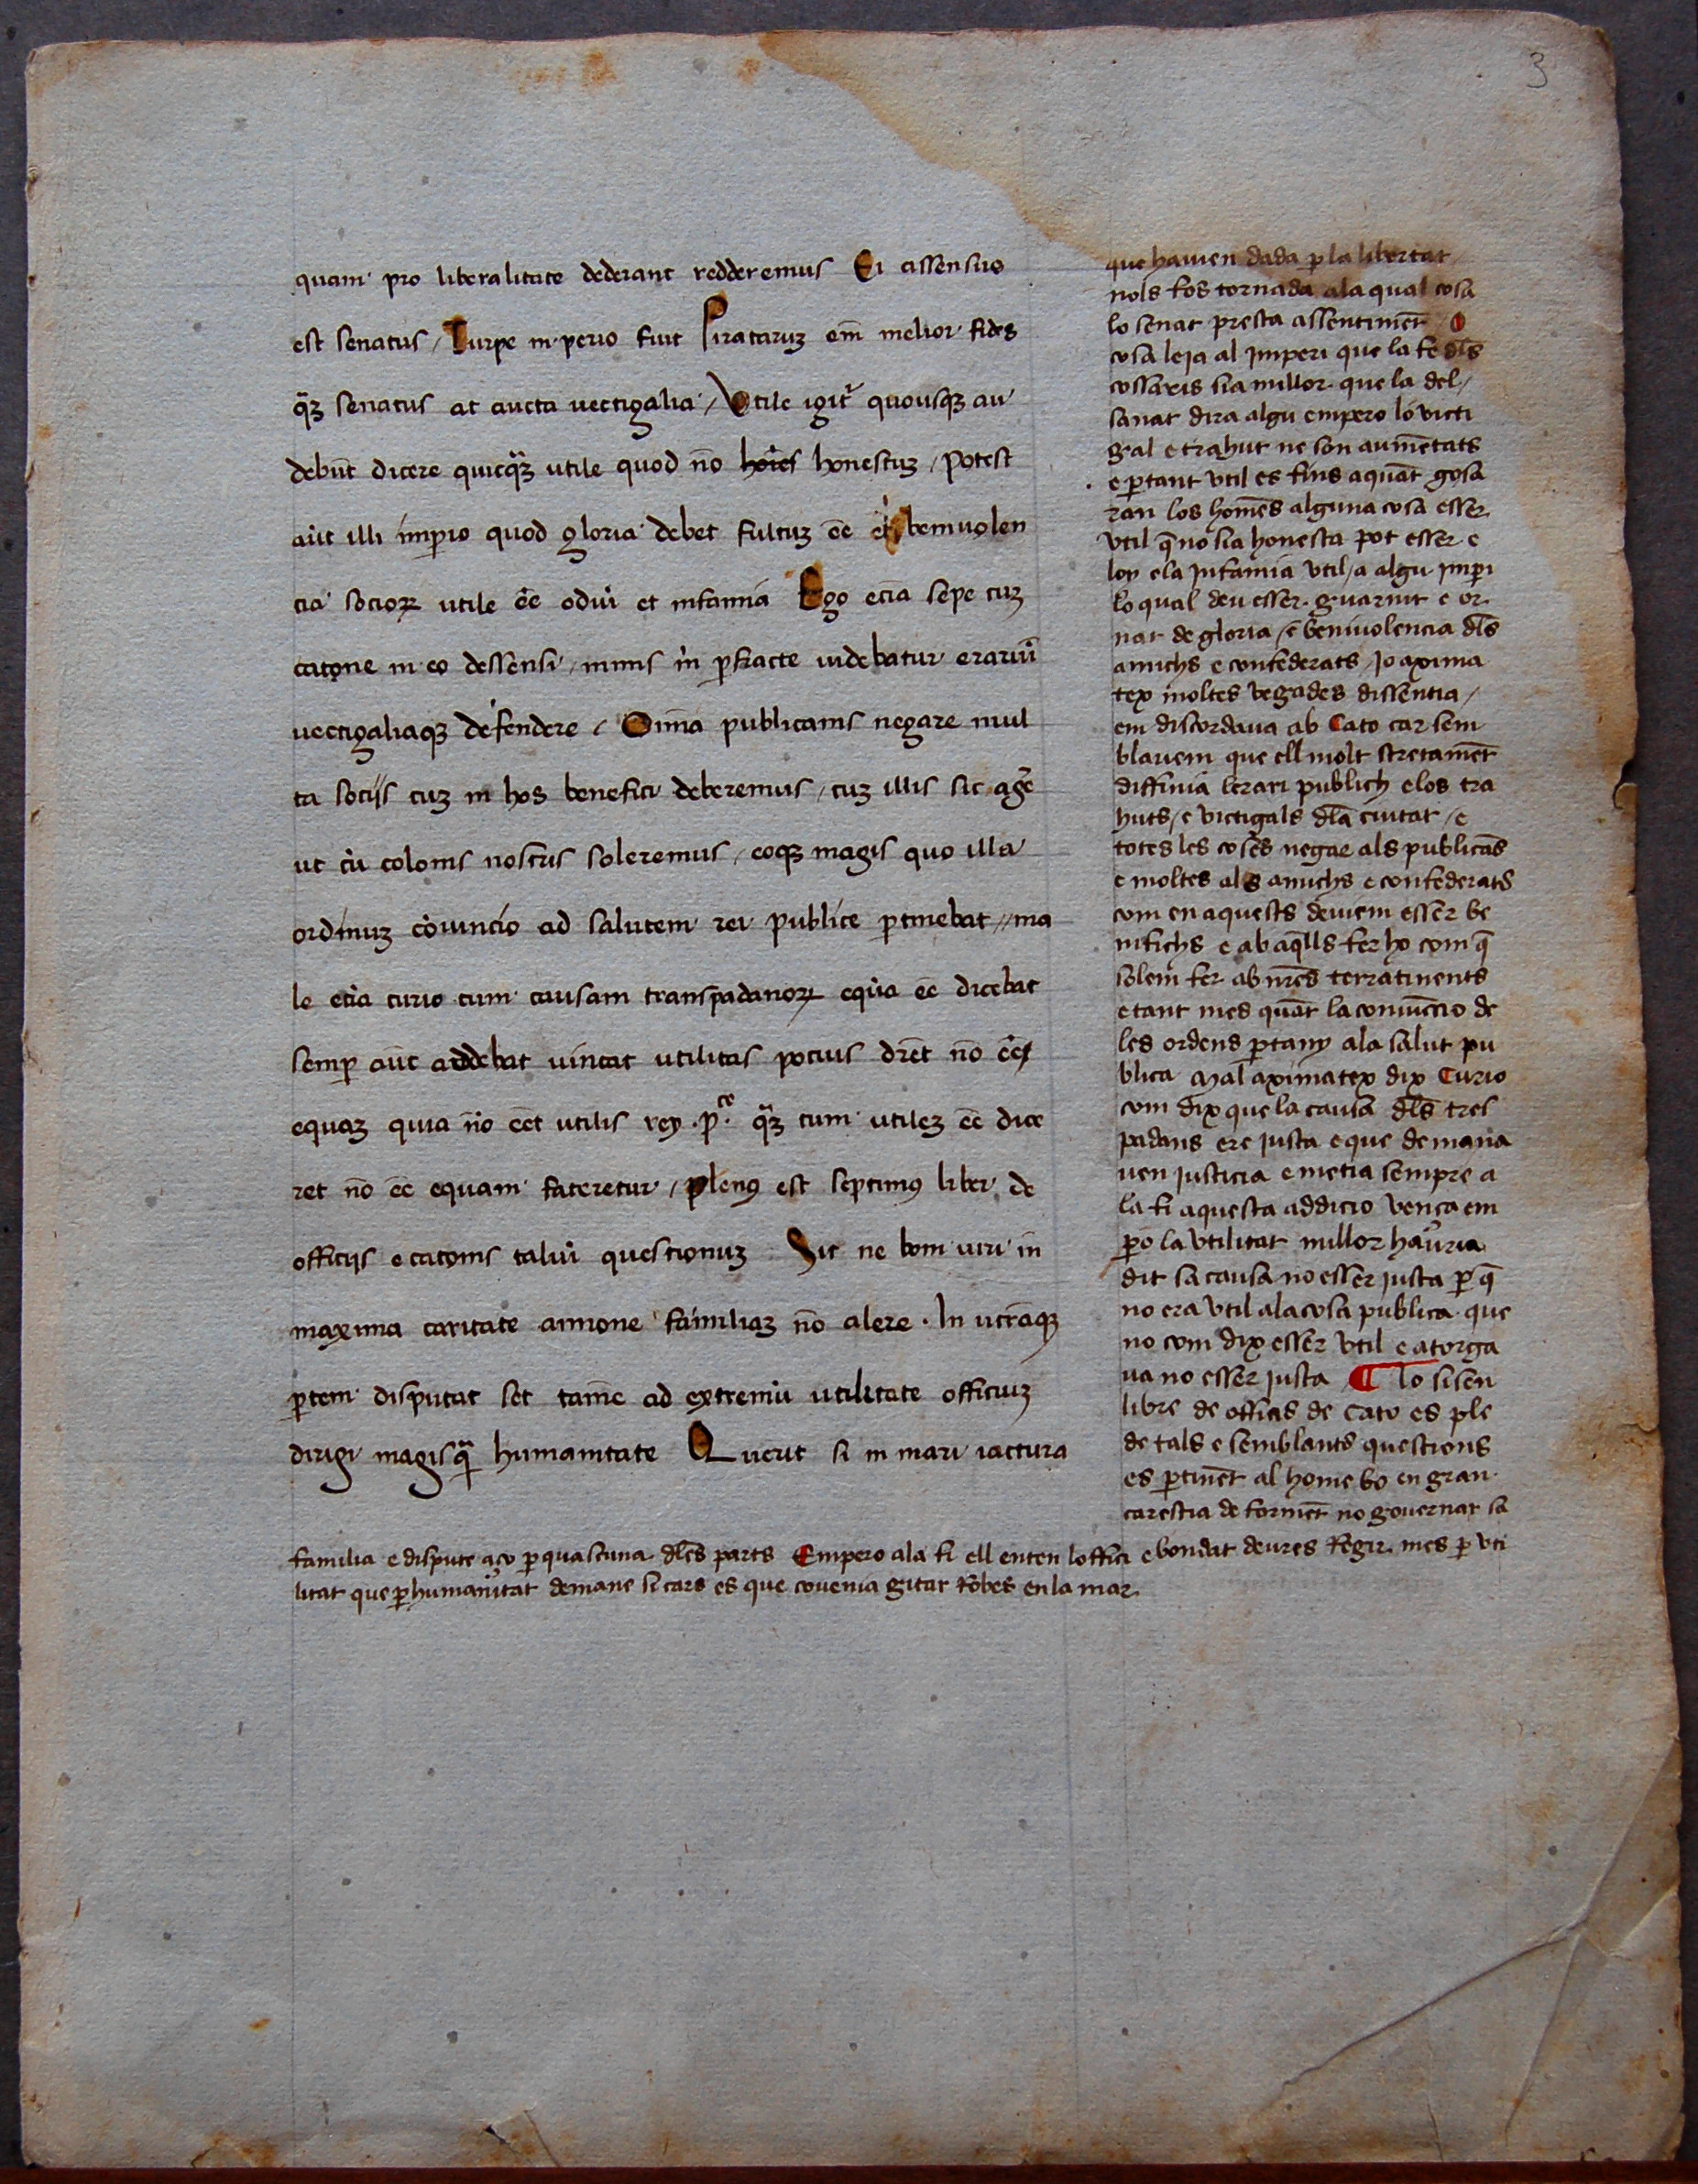 3
quam pro liberalitate dederant redderemus Ei assensus
est senatus / Turpe inperio fuit Pirataruz em̄ melior fides
q̄ȝ senatus at aucta uectigalia / Vtile igit̄ quousqȝ au
debūt dicere quicq̄ȝ utile quod nō hoīes honestuȝ / Potest
aūt illi imꝑio quod gloria debet fultuȝ eē et beniuolen
cia socioꝝ utile eē odiū et infamia Ego eciā sepe cuȝ
catone in eo dessensi / nimis m̄ p̄fracte uidebatur erariū
uectigaliaqȝ defendere / Oīnia publicanis negare mul
ta sociis cuȝ in hos benefici deberemus / cuȝ illis sic agē
ut cū colonis nostris soleremus / eoqȝ magis quo illa
ordinuȝ cōiuncio ad salutem rei publice ꝑtinebat // ma
le eciā curio cum causam transpadanoꝝ equā eē dicebat
semꝑ aūt addebat uincat utilitas pocius dr̄et nō eē
equaȝ quia nō eēt utilis rey .p.ce q̄ȝ cum utileȝ eē dice
ret nō eē equam fateretur / plenꝰ est septimꝰ liber de
officijs ecatonis taliū questionuȝ Sit ne boni uiri in
maxima caritate annone familiaȝ nō alere . In utrāqȝ
ꝑtem disputat set tamē ad extremū utilitate officiuȝ
dirigi magisq̄ humanitate Querit si in mari iactura
que hauien dada ꝑ la libertat
nols fos tornada ala qual cosa
lo senat presta assentimēt
cosa leja al Imperi que la fe dl̄s
cossaris sia millor que la del /
sanat dira algu empero lo victi
gal e trahut ne son aumētats
e ꝑtant vtil es fins aquāt gosa
ran los homēs alguna cosa esser
vtil q̄ no sia honesta pot esser e
loy ela Infamia vtil / a algu Imꝑi
lo qual deu esser guarnit e or
nat de gloria / e beniuolencia dl̄s
amichs e confederats / Jo axima
tex moltes vegades dissentia /
em discordaua ab Cato car sem
blauem que ell molt stretamēt
diffinia lerari publich elos tra
huts / e victigals dl̄a ciutat / e
totes les coses negar als publicās
e moltes als amichs e confederats
com en aquests deuiem esser be
nifichs e ab aq̄lls fer ho com q̄
solem fer ab nr̄es terratinents
e tant mes quāt la coniūccio de
les ordens ꝑtany ala salut pu
blica Mal aximatex dix Curio
com dix que la causa dl̄s tres
padans ere justa e que demana
uen justicia e metia sempre a
la fi aquesta addicio vença em
ꝑo la vtilitat millor hauria
dit sa causa no esser justa ꝑ q̄
no era vtil ala cosa publica que
no com dix esser vtil e atorga
ua no esser justa ¶ Lo sisen
libre de officis de Cato es ple
de tals e semblants questions
es ꝑtinēt al home bo en gran
carestia de formēt no gouernar sa
familia e dispute aço ꝑ quascuna dl̄es parts Empero ala fi ell enten loffici e bondat deures Regir mes ꝑ vti
litat que ꝑ humanitat demane si cars es que couenia gitar Robes en la mar